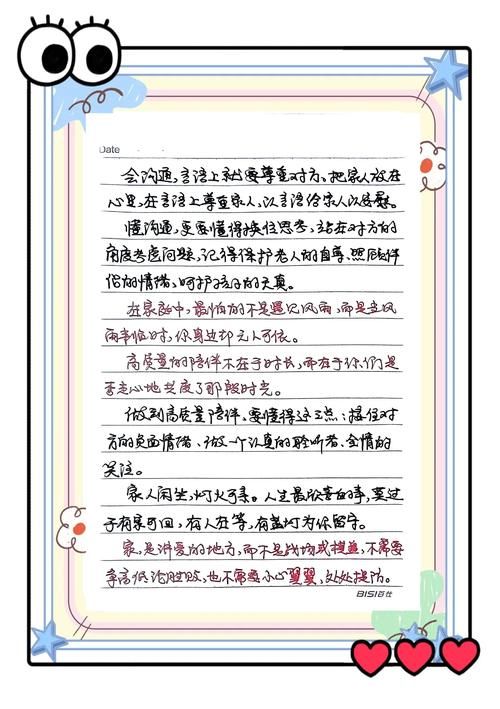 Date
会沟通,言语上就要尊重对方。把家人放在
心里,在言语上尊重家人,以言语给家人以慰藉。
懂沟通,更要懂得换位思考,站在对方的
角度考虑问题,记得保护老人的自尊、照顾伴
侣的情绪、呵护孩子的天真。
在家庭中,最怕的不是遇见风雨,而是当风
雨来临时,你身边却无人可依。
高质量的陪伴不在于时长,而在于你们是
否走心地共度了那段时光。
做到高质量陪伴,要懂得这三点:接住对
方的负面情绪、做一个认真的聆听者、全情的
关注。
家人闲坐,灯火可亲。人生最欣喜的事,莫过
于有家可回,有人在等,有盏灯为你留守。
家,是讲爱的地方,而不是战场或擂台,不需要
争高低论胜败,也不需要小心翼翼,处处提防。
BISI百仕